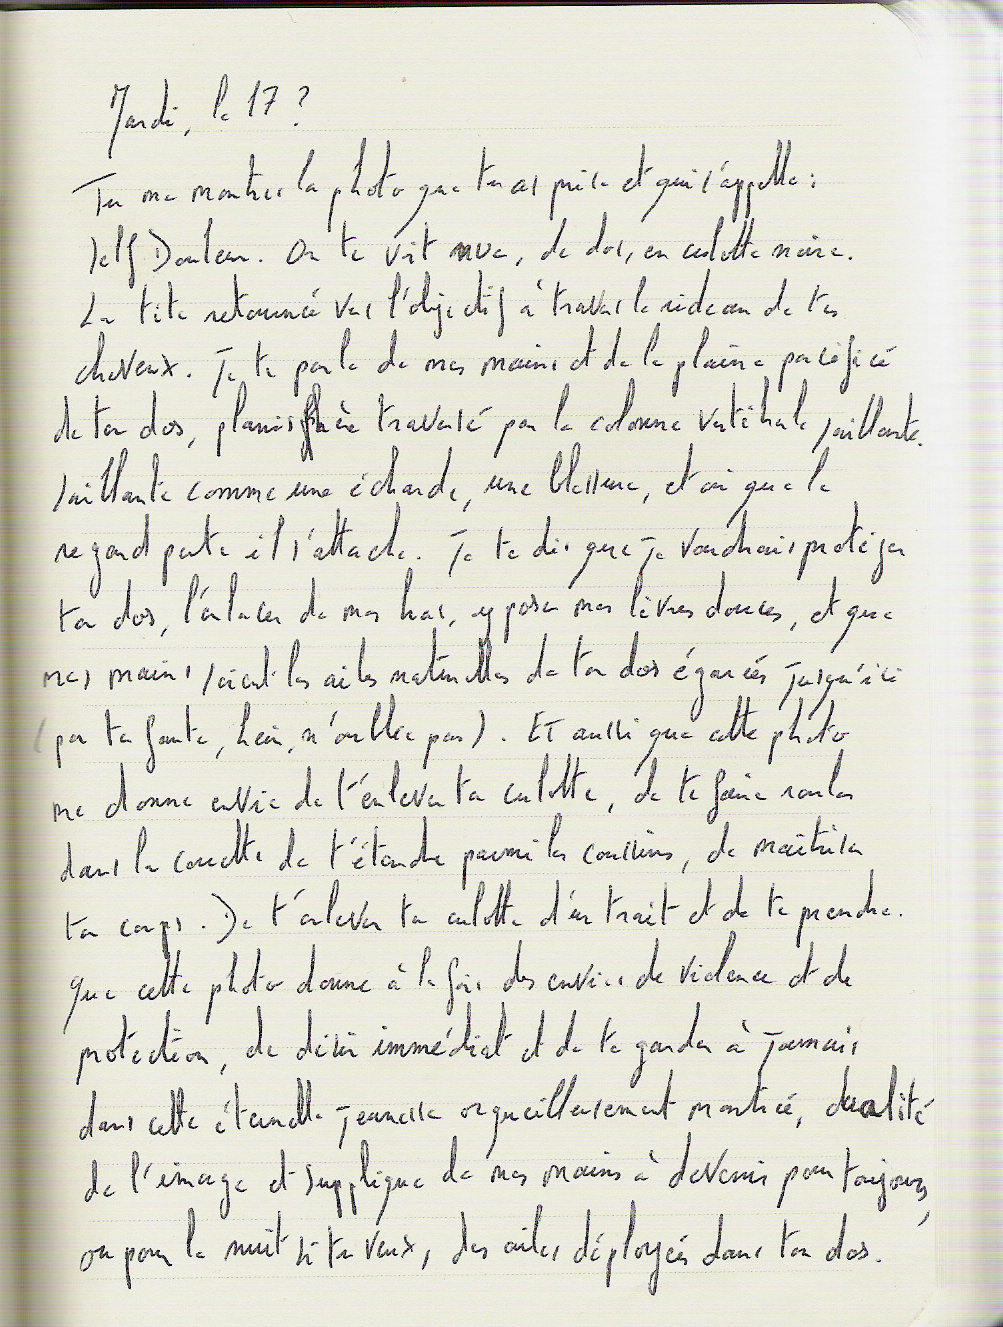 Mardi, le 17 ?
Tu me montres la photo que tu as prise et qui s'appelle :
Self Douleur. On te voit nue, de dos, en culotte noire.
La tête retournée vers l'objectif à travers le rideau de tes
cheveux. Je te parle de mes mains et de la plaine pacifiée
de ton dos, planisphère traversé par la colonne vertébrale saillante.
saillante comme une écharde, une blessure, et où que le
regard porte il s'attache. Je te dis que je voudrais protéger
ton dos, l'enlacer de mes bras, y poser mes lèvres douces, et que
mes mains soient les ailes naturelles de ton dos égarées jusqu'ici
(par ta faute, hein, n'oublie pas). Et aussi que cette photo
me donne envie de t'enlever ta culotte, de te faire rouler
dans la couette de t'étendre parmi les coussins, de maîtriser
ton corps. De t'enlever ta culotte d'un trait et de te prendre.
Que cette photo donne à la fois des envies de violence et de
protection, de désir immédiat et de te garder à jamais
dans cette éternelle jeunesse orgueilleusement montrée, dualité
de l'image et supplique de mes mains à devenir pour toujours,
ou pour la nuit si tu veux, des ailes déployées dans ton dos.